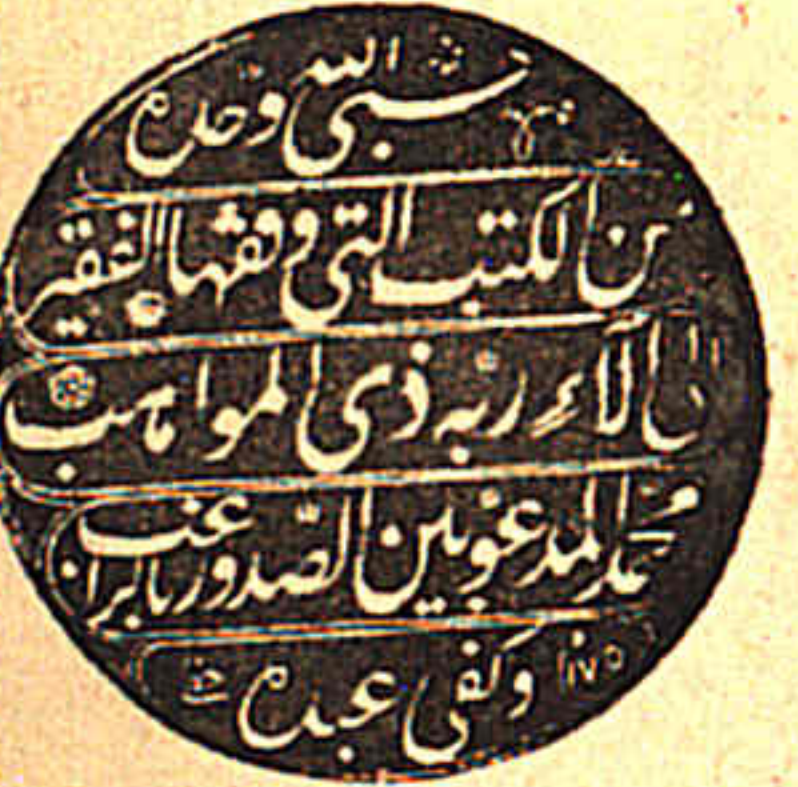 حسبی الله وحده
من الکتب التی وقفها الفقیر
الی آلاء ربه ذی المواهب
محمد المدعو بین الصدور بالراغب
وکفی عبده ١١٧٥